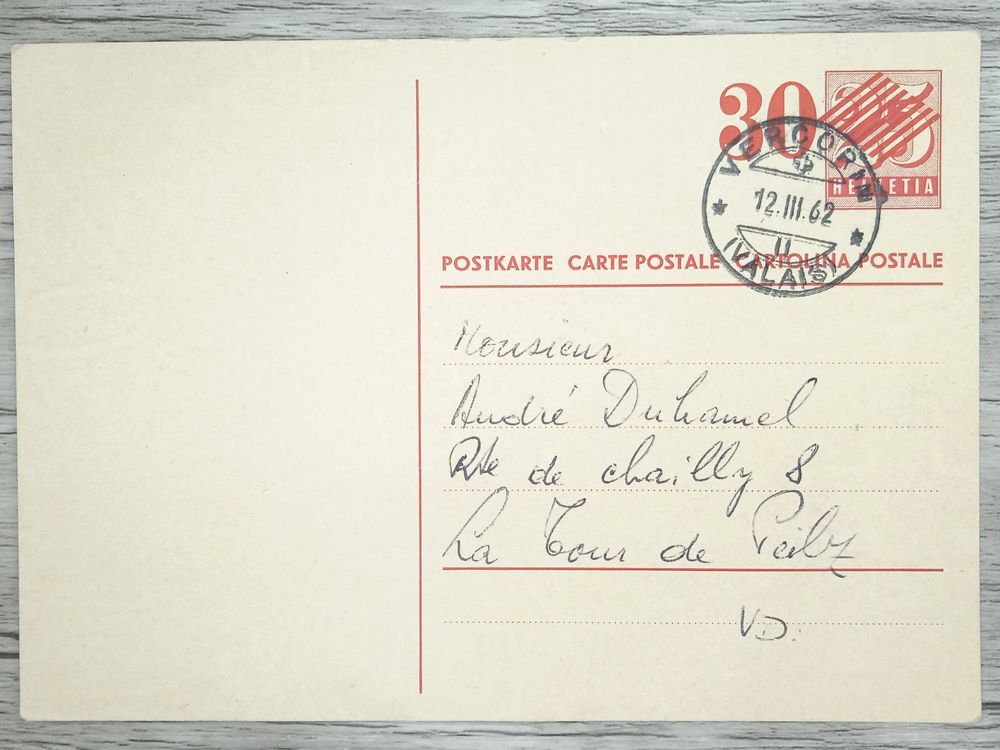 30
25
HELVETIA
VERCORIN
12.III.62
(VALAIS)
POSTKARTE CARTE POSTALE CARTOLINA POSTALE
Monsieur
André Duhamel
Rte de chailly 8
La Tour de Peilz
VD.